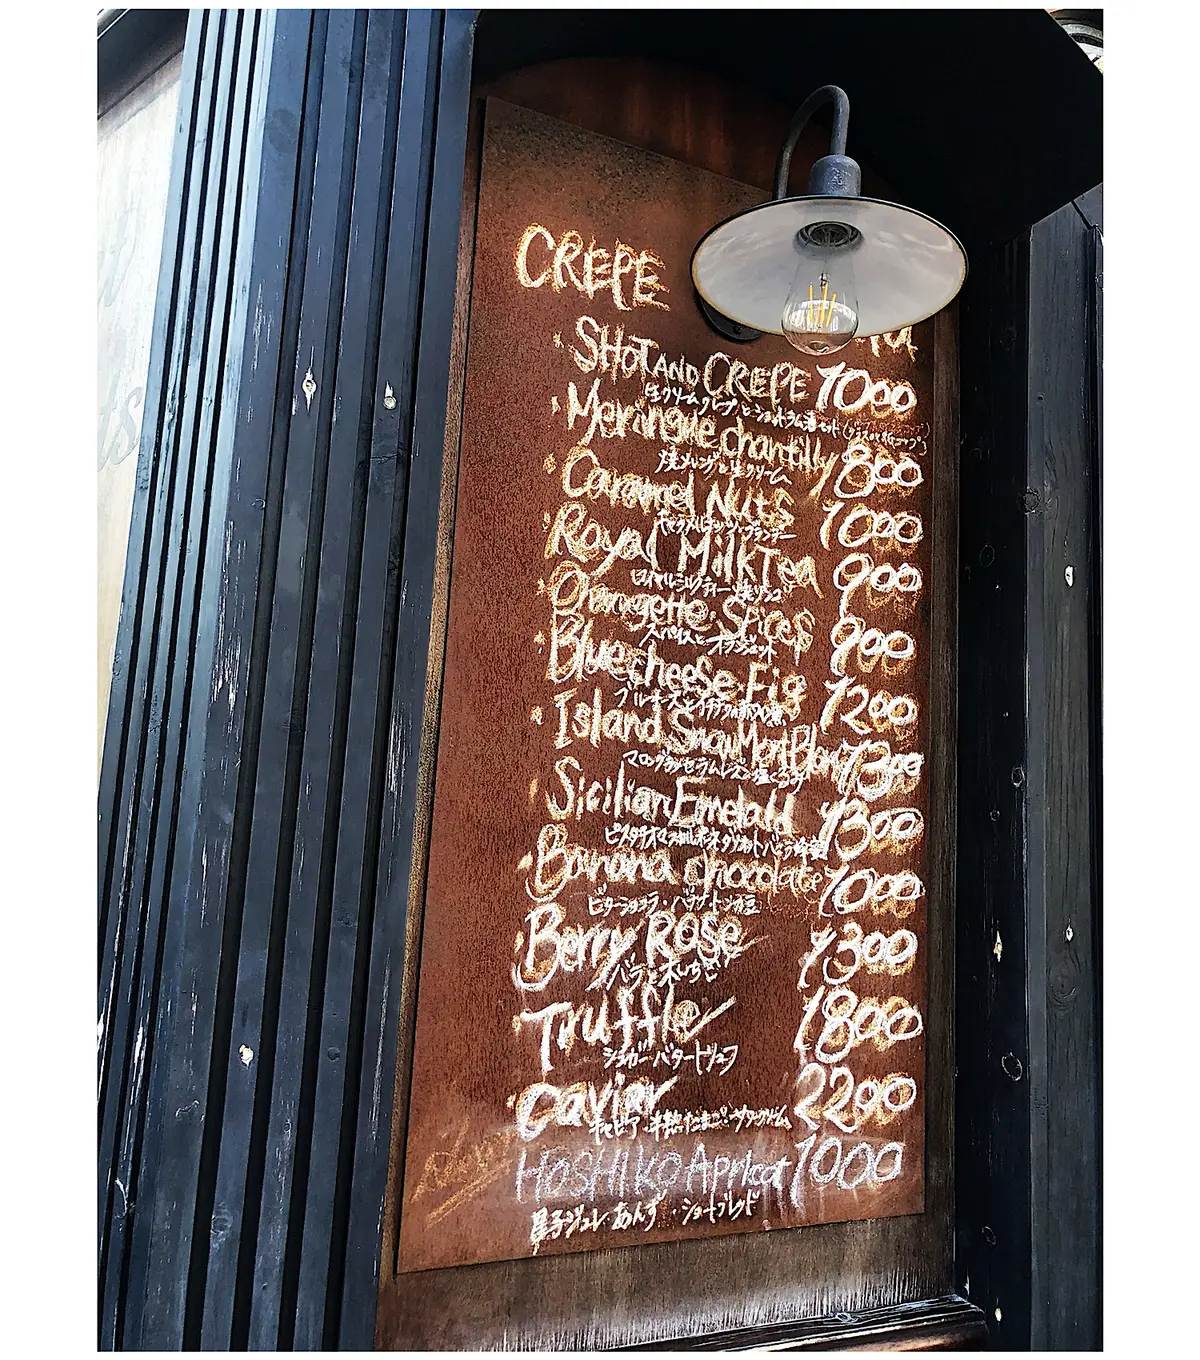 CREPE
SHOT AND CREPE 1000
生クリームクレープとショットラム酒セット
Meringue chantilly 800
焼メレンゲと生クリーム
Caramel Nuts 1000
キャラメルナッツ・ブランデー
Royal MilkTea 900
ロイヤルミルクティー・焼リンゴ
Orangette Spices 900
スパイスとオランジェット
Bluecheese Fig 1200
ブルーチーズとイチヂクの赤ワイン煮
Island SnowMontBlanc 1300
マロングラッセ・ラムレーズン・塩くるみ
Sicilian Emelald 1300
Banana chocolate 1000
ビターショコラ・バナナ・トンカ豆
Berry Rose 1300
バラと木いちご
Truffle 1800
シュガー・バタートリュフ
Caviar 2200
キャビア・半熟たまご・サワークリーム
HOSHIKO Apricot 1000
星子ジュレ・あんず・ショートブレッド